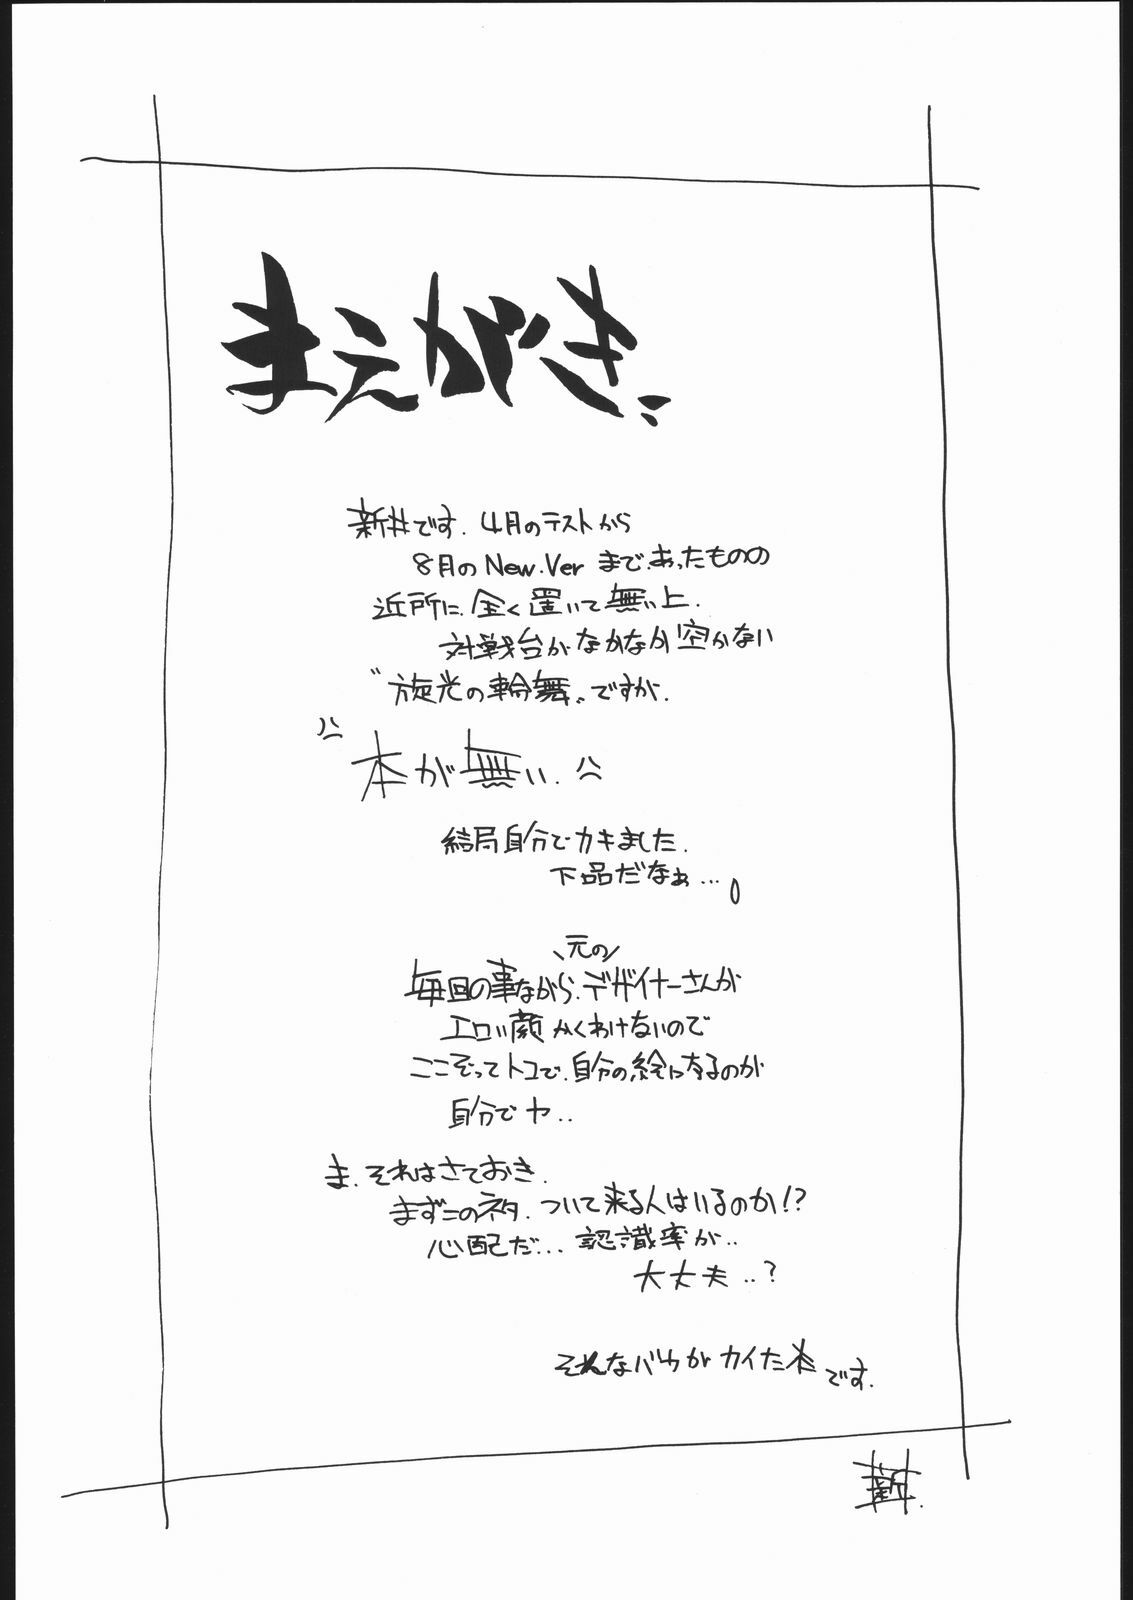 まえがき
新井です. 4月のテストから
8月の New.Ver まで.あったものの
近所に.全く置いて無い上.
対戦台がなかなか空かない
"旋光の輪舞"ですが.
本が無い.
結局自分でカキました.
下品だなぁ...
\元の/
毎回の事ながら.デザイナーさんが
エロい顔かくわけないので
ここぞってトコで.自分の絵になるのが
自分でヤ..
ま.それはさておき.
まずこのネタ.ついて来る人はいるのか!?
心配だ... 認識率が..
大丈夫..?
そんなバカがカイた本です.
新